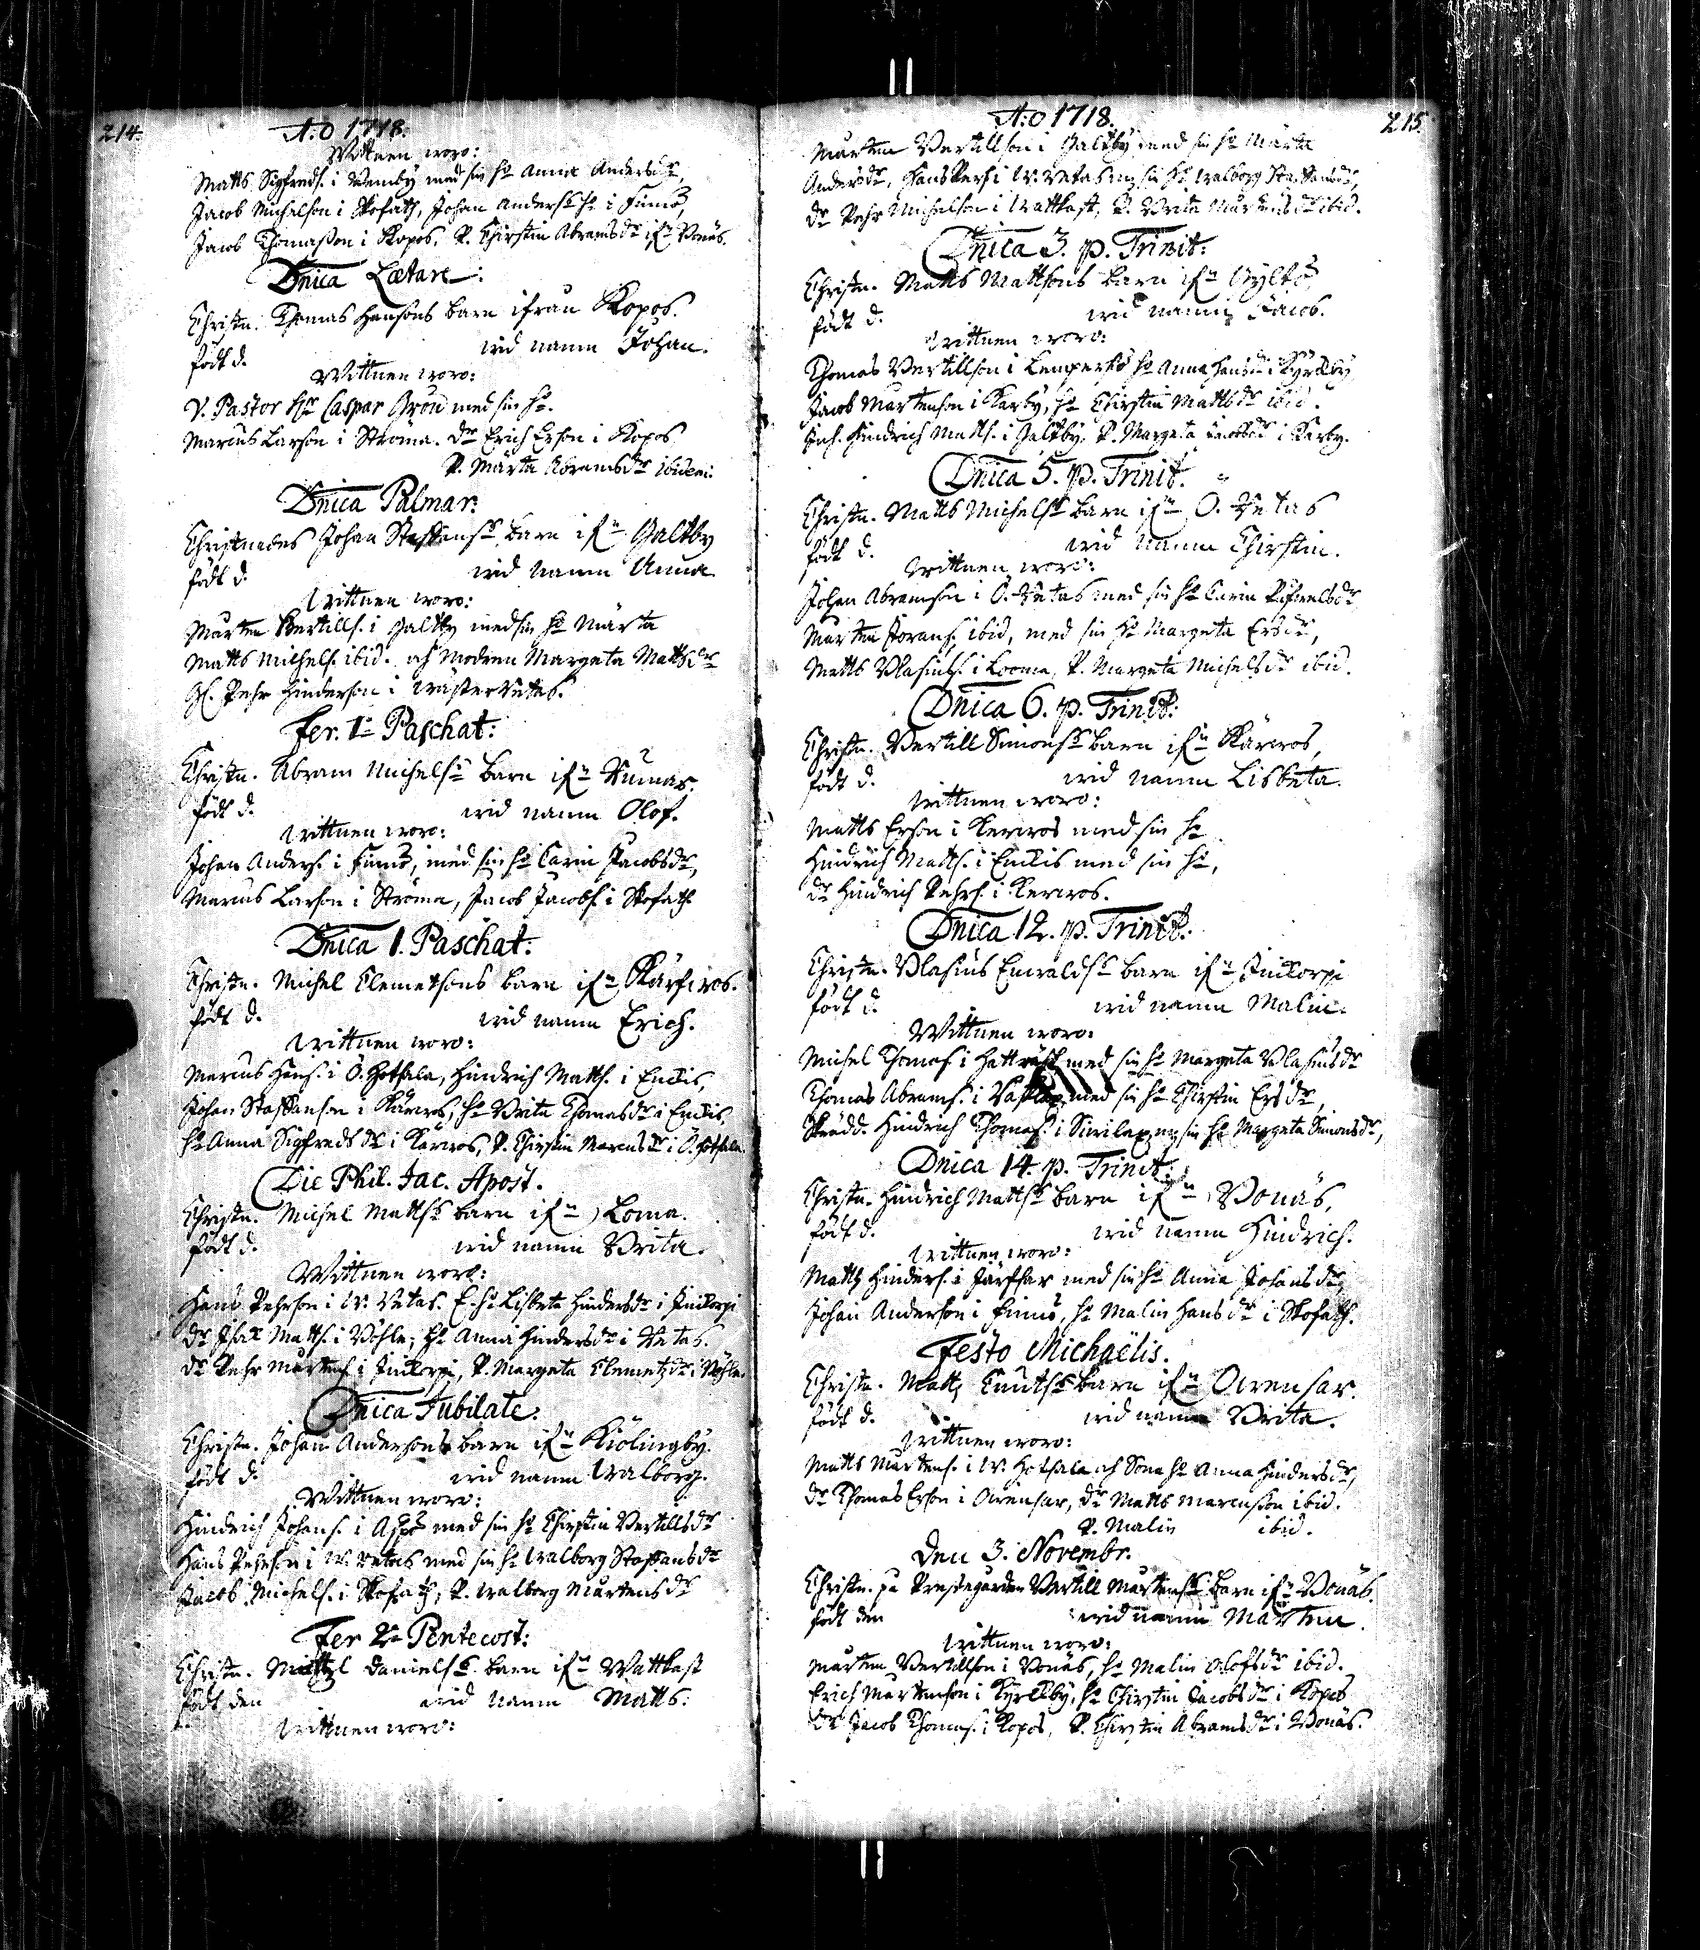 214.
A:o 1718.
Wittnen woro:
Matts Sigfreds. i Wemby med sin h:o Anna Andersd:r,
Jacob Michelson i Skofath, Johan Anders:s h:o i Finnö,
Jacob Thomasson i Kopos. P. Chirstin Abramsd:r if:n Wonäs.
Dnica Lætare:
Christn. Thomas Hansons barn ifrån Kopos.
född d. wid namn Johan.
Wittnen woro:
V. Pastor H:r Caspar Grön med sin h:o.
Marcus Larson i Ströma. Dr Erich Erson i Kopos
P. Märta Abramsd:r ibidem:
Dnica Palmar:
Christnades Johan Staffans:s barn if:n Galtby
född d. wid namn Anna
Wittnen woro:
Mårten Bertills. i Galtby med sin h:o Märta
Matts Michels. ibid. och modren Margeta Mattsd:r
Gl. Pehr Hinderson i Wäster Retas.
Fer. 1:a Paschat:
Christn. Abram Michels:s barn if:n
född d. wid namn Olof.
Wittnen woro:
Johan Anders. i Finnö, med sin h:o Carin Jacobsd:r,
Marcus Larson i Ströma, Jacob Jacobs. i Skofath
Dnica 1. Paschat:
Christn. Michel Clemetsons barn if:n
född d. wid namn Erich.
Wittnen woro:
Marcus Hans. i Ö. Hotsala, Hindrich Matts. i Enckis,
Johan Staffanson i Kärwos, h:o Brita Thomasd:r i Enckis,
h:o Anna Sigfredsd:r i Kärwos, P. Chirstin Marcusd:r i Ö. Hotsala.
Die Phil. Jac. Apost.
Christn. Michel Matts:s barn if:n Loma.
född d. wid namn Brita.
Wittnen woro:
Hans Pehrson i W. Retas. E. h:o Lisbeta Hindersd:r i Jutkorpi
Dr Isak Matts. i Wåhle; h:o Anna Hindersd:r i Retas.
Dr Pehr Mårtens. i Jutkorpi, P. Margeta Clemetzd:r i Wåhle.
Dnica Jubilate.
Christn. Johan Andersons barn if:n Kiölingby.
född d. wid namn Walborg.
Wittnen woro:
Hindrich Johans. i Aspö med sin h:o Chirstin Bertillsd:r
Hans Pehrson i W. Retas med sin h:o Walborg Staffansd:r
Jacob Michels. i Skofath, P. Walborg Mårtensd:r
Fer 2:a Pentecost:
Christn. Daniels:s barn if:n Wattkast
född den wid namn Matts:
Wittnen woro:
215.
A:o 1718.
Mårten Bertillson i Galtby med sin h:o Märta
Andersd:r, Hans Pers. i W. Retas m sin h:o Walborg Staffansd:r,
Dr Pehr Michelson i Wattkast, P. Brita Mårtensd:r ibid.
Dnica 3. p. Trinit:
Christn. Matts Mattsons barn if:n Gyltö
född d. wid namn Jacob.
Wittnen woro:
Thomas Bertillson i Lempersö h:o Anna Hansd:r i Kyrckby,
Jacob Mårtenson i Karby, h:o Chirstin Mattsd:r ibid.
Hindrich Matts. i Galtby. P. Margeta Jacobsd:r i Karby.
Dnica 5. p. Trinit.
Christn. Matts Michels:s barn if:n Ö. Retas
född d. wid namn Chirstin.
Wittnen woro:
Johan Abramson i Ö. Retas med sin h:o Carin
Mårten Jorans. ibid, med sin h:o Margeta Ersd:r,
Matts Blasius. i Looma, P. Margeta Michelsd:r ibid.
Dnica 6. p. Trinit:
Christn. Bertill Simons:s barn if:n Kärwos,
född d. wid namn Lisbeta.
Wittnen woro:
Matts Erson i Kerwos med sin h:o
Hindrich Matts. i Enckis med sin h:o,
Dr Hindrich Pehrs. i Kerwos.
Dnica 12. p. Trinit:
Christn. Blasius Ewalds:s barn if:n Jutkorpi
född d. wid namn Malin.
Wittnen woro:
Michel Thomas. i med sin h:o Margeta Blasiusd:r
Thomas Abrams. i med sin h:o Chirstin Ersd:r,
Skrädd. Hindrich Thomas. i m sin h:o Margeta Simonsd:r,
Dnica 14. p. Trinit:
Christn. Hindrich Matts:s barn if:n Wonäs,
född d. wid namn Hindrich.
Wittnen woro:
Matts Hinders. i med sin h:o Anna Johansd:r,
Johan Anderson i Finnö, h:o Malin Hansd:r i Skofath.
Festo Michaëlis.
Christn. Matts Cnuts:s barn if:n Owensar.
född d. wid namn Brita.
Wittnen woro:
Matts Mårtens. i W. Hotsala och Sona h:o Anna Hindersd:r,
Dr Thomas Erson i Owensar, Dr Matts Marcusson ibid.
P. Malin ibid.
Den 3. Novembr.
Christn. på Prestegården Bertill Mårtens:s barn if:n Wonäs.
född den wid namn Mårten.
Wittnen woro:
Mårten Bertillson i Wonäs, h:o Malin Olofsd:r ibid.
Erich Mårtenson i Kyrckby, h:o Chirstin Jacobsd:r i Kopos
Dr Jacob Thomas. i Kopos, P. Chirstin Abramsd:r i Wonäs.